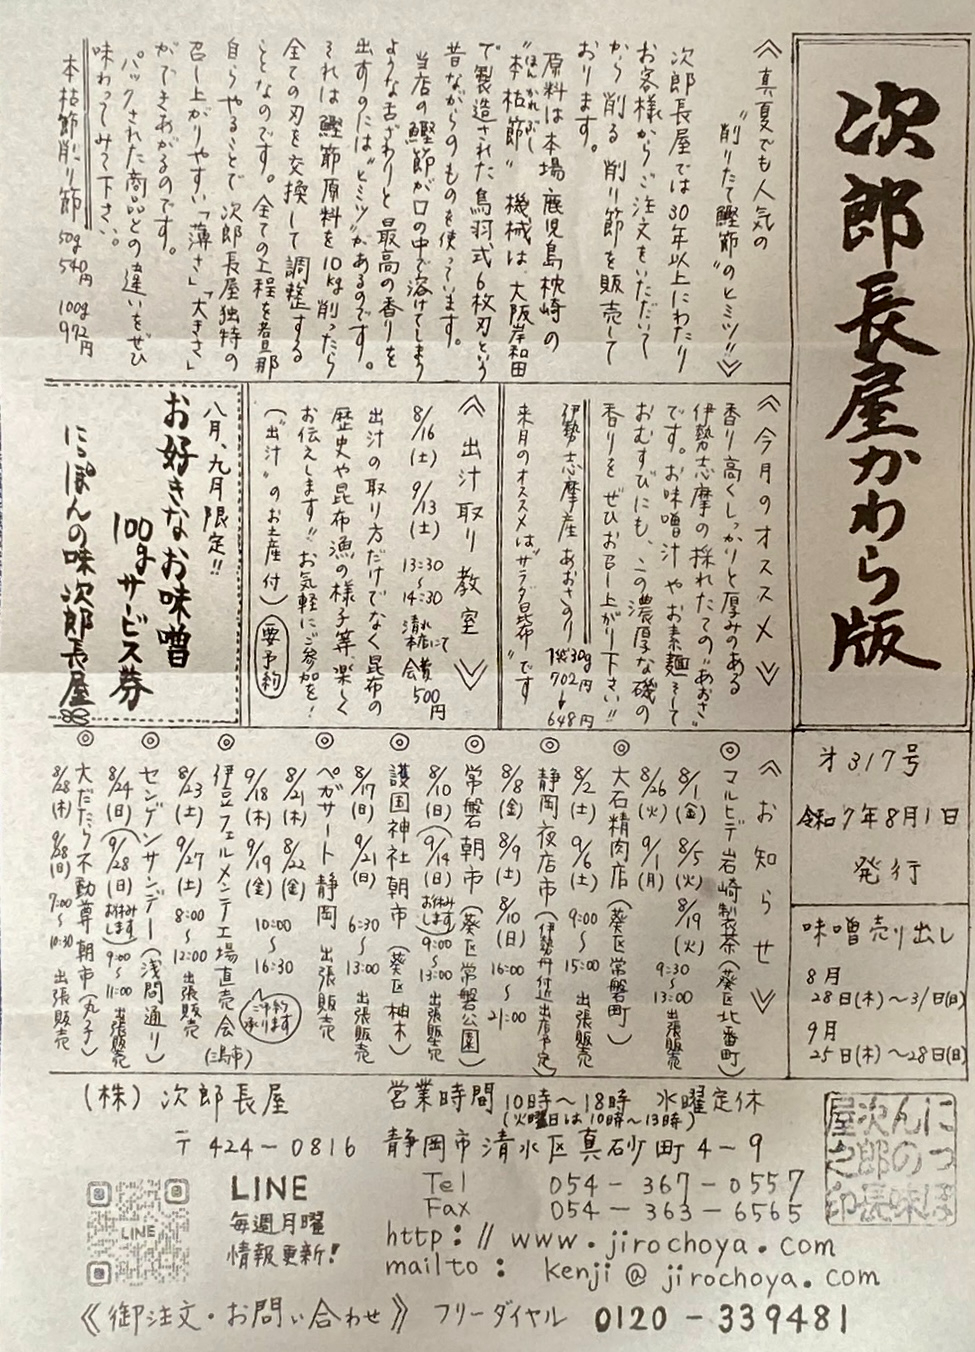 次郎長屋かわら版
《真夏でも人気の
〝削りたて鰹節〟のヒミツ!!》
次郎長屋では30年以上にわたり
お客様からご注文をいただいて
から削る削り節を販売して
おります。
原料は本場鹿児島枕崎の
〝本枯節〟機械は、大阪岸和田
ほんかれぶし
で製造された鳥羽式6枚刃という
昔ながらのものを使っています。
当店の鰹節が口の中で溶けてしまう
ような舌ざわりと最高の香りを
出すのには〝ヒミツ〟があるのです。
それは鰹節原料を10kg削ったら
全ての刃を交換して調整する
ことなのです。全ての工程を若旦那
自らやることで次郎長屋独特の
召し上がりやすい「薄さ」「大きさ」
ができあがるのです。
パックされた商品との違いをぜひ
味わってみて下さい。
本枯節削り節 50g 540円 100g 972円
《今月のオススメ》
香り高くしっかりと厚みのある
伊勢志摩の採れたての〝あおさ〟
です。お味噌汁やお素麺そして
おむすびにも、この濃厚な磯の
香りをぜひお召し上がり下さい!!
伊勢志摩産あおさのり 1袋30g 702円→648円
来月のオススメは〝サラダ昆布〟です
《出汁取り教室》
8/16(土) 9/13(土) 13:30～14:30 清水本店にて 会費500円
出汁の取り方だけでなく昆布の
歴史や昆布漁の様子等楽しく
お伝えします!!お気軽にご参加を!
(〝出汁〟のお土産付) 要予約
八月、九月限定!!
お好きなお味噌
100gサービス券
にっぽんの味次郎長屋
オ317号
令和7年8月1日
発行
味噌売り出し
8月
28日(木)～31日(日)
9月
25日(木)～28日(日)
《お知らせ》
◎マルヒデ岩崎製茶(葵区北番町)
8/1(金) 8/5(火) 8/19(火)
8/26(火) 9/1(月) 9:30～13:00 出張販売
◎大石精肉店(葵区常磐町)
8/2(土) 9/6(土) 9:00～15:00 出張販売
◎静岡夜店市(伊勢丹付近出店予定)
8/8(金) 8/9(土) 8/10(日) 16:00～21:00
◎常磐朝市(葵区常磐公園)
8/10(日) (9/14(日)お休みします) 9:00～13:00 出張販売
◎護国神社朝市(葵区柚木)
8/17(日) 9/21(日) 6:30～13:00 出張販売
◎ペガサート静岡 出張販売
8/21(木) 8/22(金)
9/18(木) 9/19(金) 10:00～16:30
ご予約承ります
◎伊豆フェルメンテ工場直売会(三島市)
8/23(土) 9/27(土) 8:00～12:00 出張販売
◎センゲンサンデー(浅間通り)
8/24(日) (9/28(日)お休みします) 9:00～11:00 出張販売
◎大だたら不動尊朝市(丸子)
8/28(木) 9/28(日) 7:00～10:30 出張販売
(株)次郎長屋
営業時間 10時～18時 水曜定休
(火曜日は10時～13時)
〒424-0816 静岡市清水区真砂町4-9
Tel 054-367-0557
Fax 054-363-6565
http://www.jirochoya.com
mailto: kenji@jirochoya.com
LINE
LINE
毎週月曜
情報更新!
にっぽんの味次郎長屋之印
《御注文・お問い合わせ》 フリーダイヤル 0120-339481